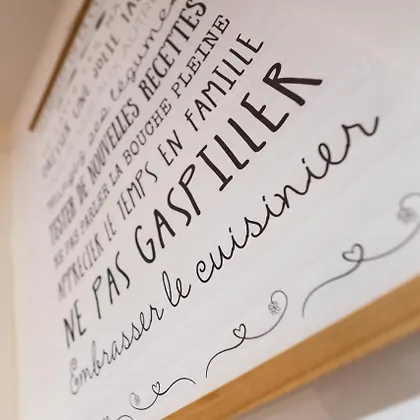 UNE JOLIE
ses légumes
TESTER DE NOUVELLES RECETTES
NE PAS PARLER LA BOUCHE PLEINE
APPRÉCIER LE TEMPS EN FAMILLE
NE PAS GASPILLER
Embrasser le cuisinier